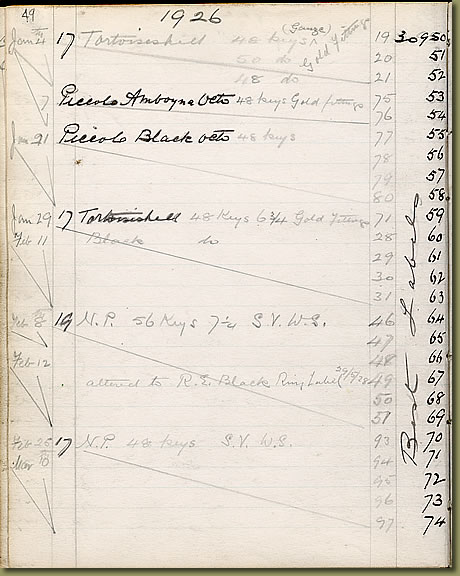 49 1926
(Gauze)
Jan 4th 17 Tortoiseshell 48 Keys Gold Fittings 19 30950
50 do 20 51
48 do 21 52
7 Piccolo Amboyna Octo 48 Keys Gold Fittings 75 53
76 54
Jan 21 Piccolo Black Octo 48 Keys 77 55
78 56
79 57
80 58
Jan 29 17 Tortoiseshell 48 Keys 6 3/4 Gold Fittings 71 59
Feb 11 Black do 28 60
29 61
30 62
31 63
Feb 8th 19 N.P. 56 Keys 7 1/4 S.V. W.S. 46 64
47 65
Feb 12 48 66
altered to R.E. Black Ring Label 49 67
50 68
51 69
Feb 25 17 N.P. 48 Keys S.V. W.S. 93 70
Mar 10th 94 71
95 72
96 73
97 74
Best Labels